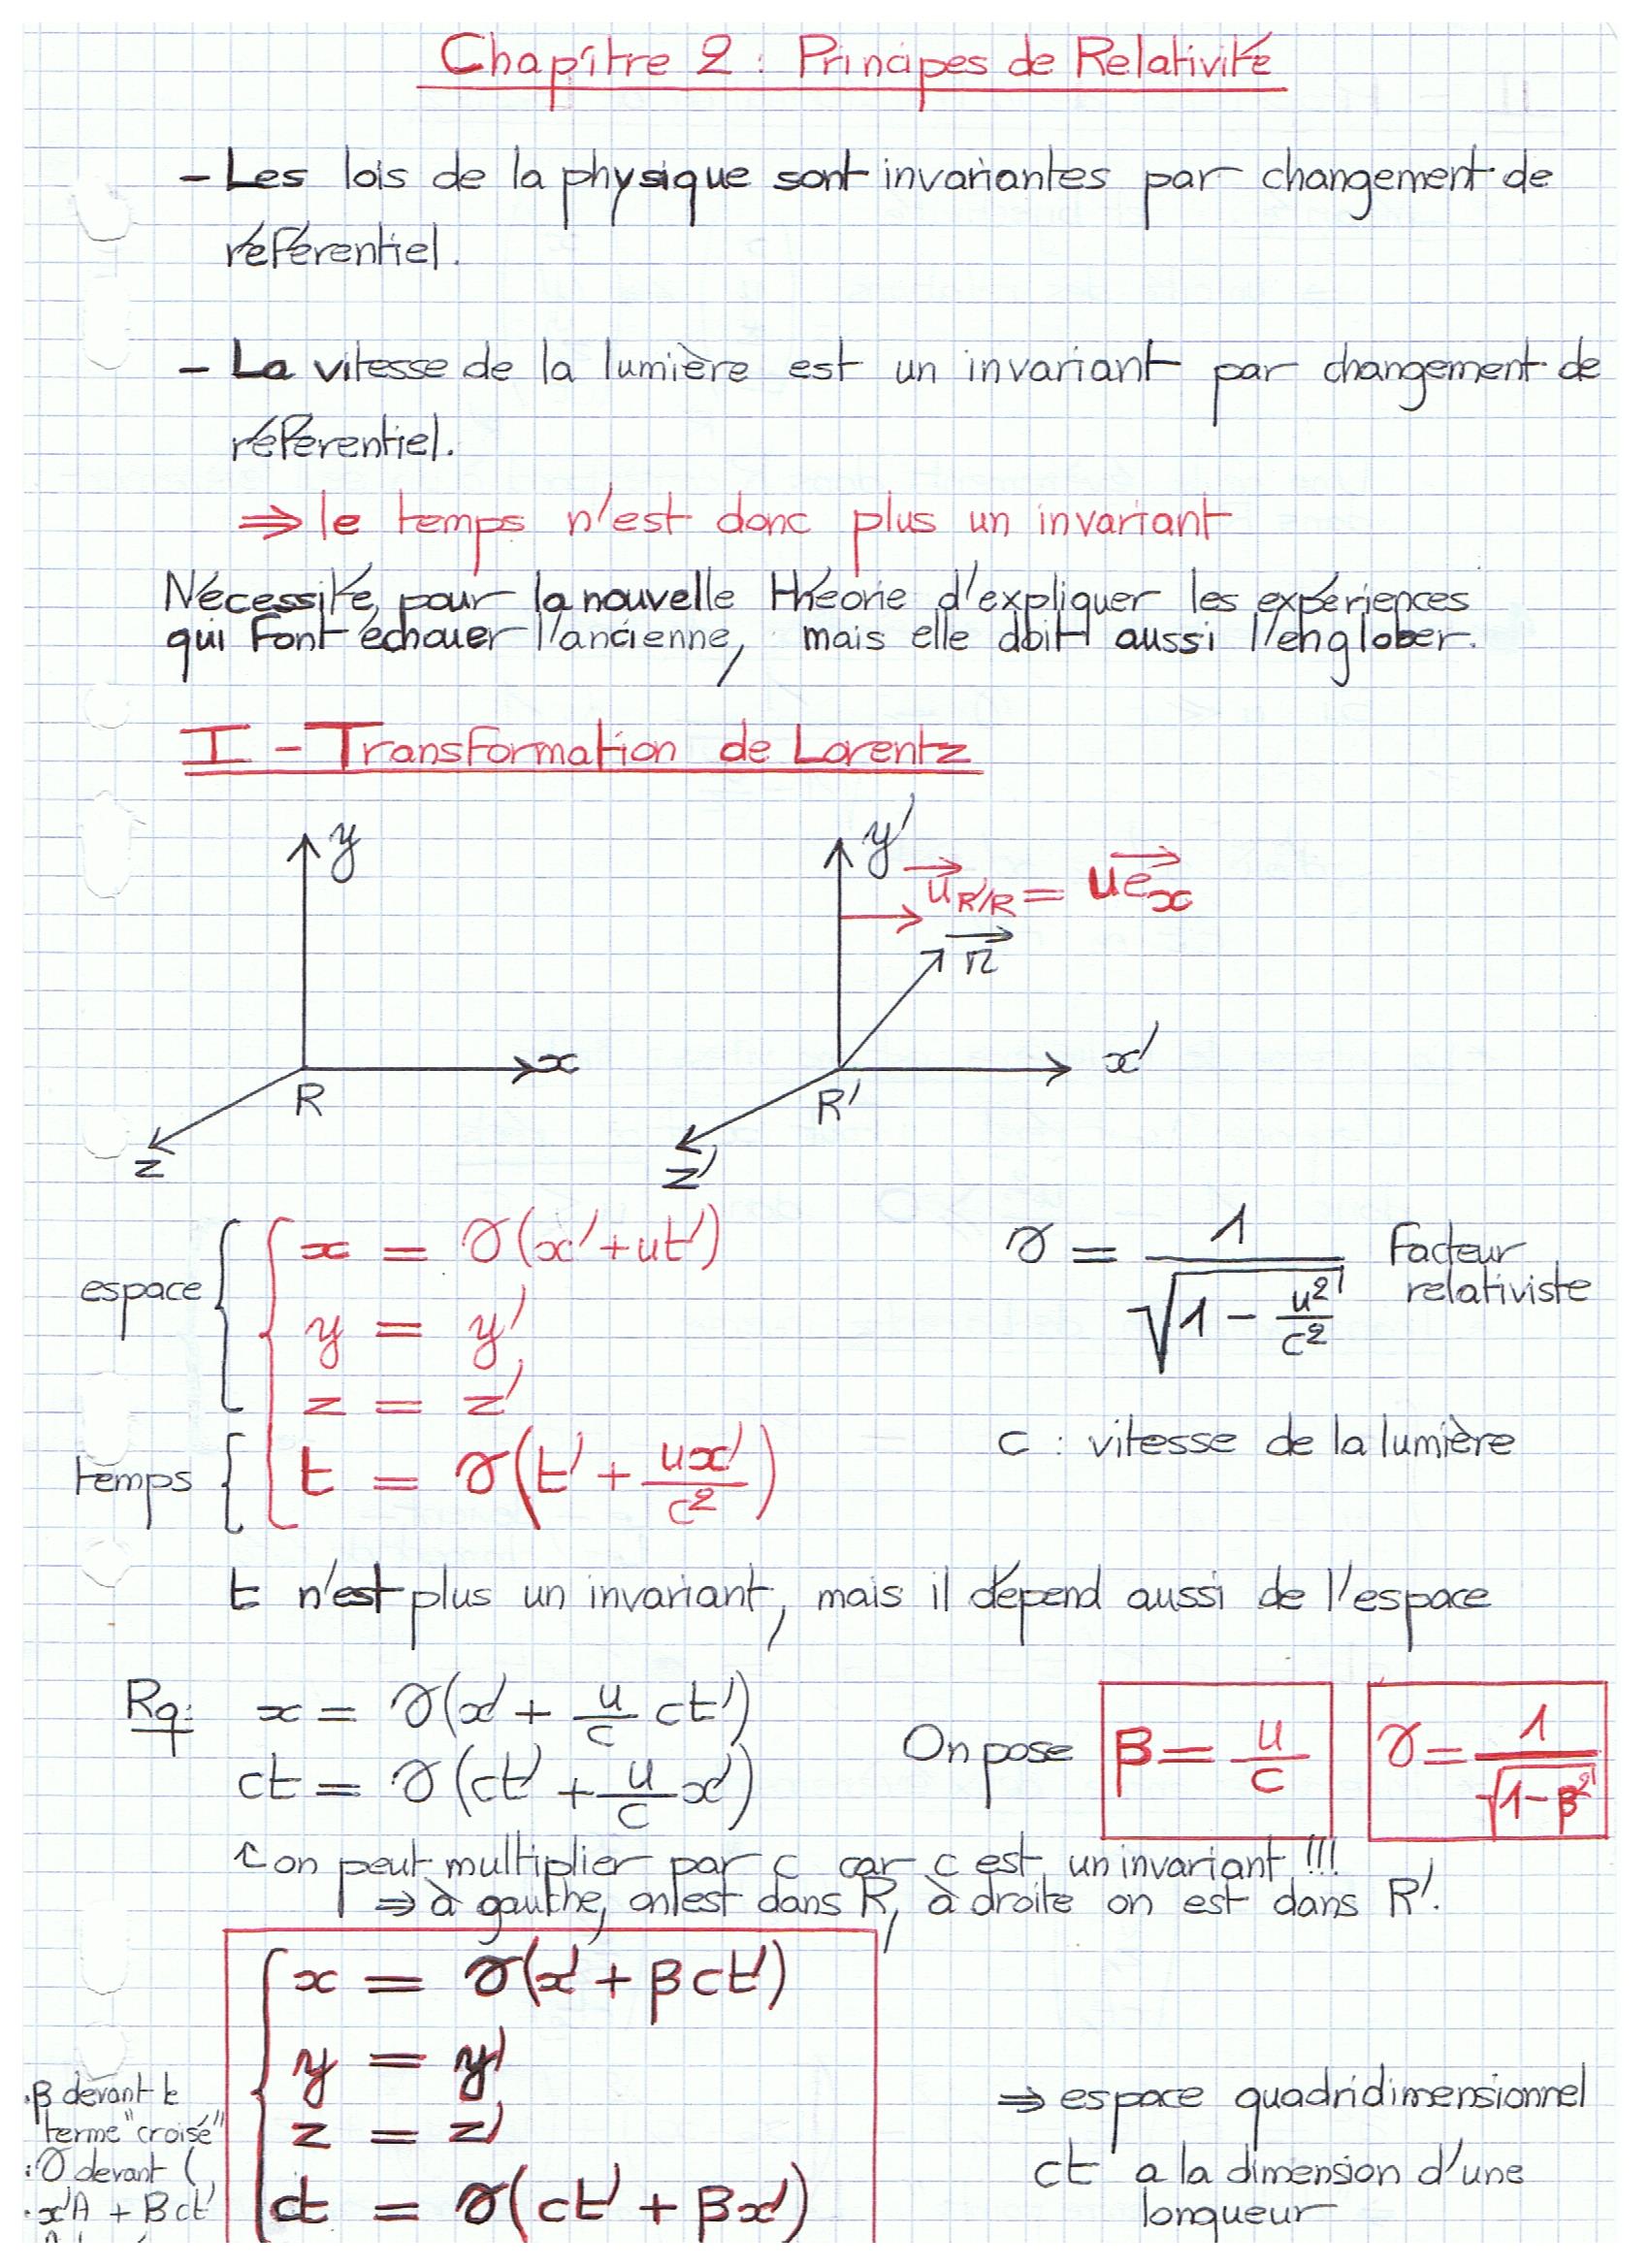 Chapître 2 : Principes de Relativité
- Les lois de la physique sont invariantes par changement de
référentiel.
- La vitesse de la lumière est un invariant par changement de
référentiel.
⇒ le temps n'est donc plus un invariant
Nécessité, pour la nouvelle théorie d'expliquer les expériences
qui font échouer l'ancienne, mais elle doit aussi l'englober.
I - Transformation de Lorentz
y
y'
u R'/R = u ex
r
x
x'
R
R'
z
z'
espace
x = γ(x' + ut')
y = y'
z = z'
temps
t = γ(t' + ux'/c²)
γ = 1/√(1 - u²/c²) facteur
relativiste
c : vitesse de la lumière
t n'est plus un invariant, mais il dépend aussi de l'espace
Rq: x = γ(x' + u/c ct')
ct = γ(ct' + u/c x')
On pose β = u/c γ = 1/√(1-β²)
on peut multiplier par c car c est un invariant !!!
⇒ à gauche, on est dans R, à droite on est dans R'.
x = γ(x' + βct')
y = y'
z = z'
ct = γ(ct' + βx')
. β devant le
terme "croisé"
: γ devant (
. x'A + Bct'
⇒ espace quadridimensionnel
ct a la dimension d'une
longueur